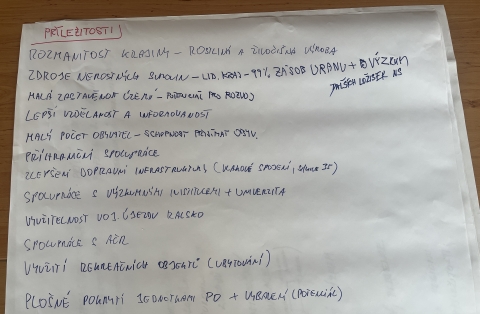 PŘÍLEŽITOSTI
ROZMANITOST KRAJINY – ROSTLINNÁ A ŽIVOČIŠNÁ VÝROBA
ZDROJE NEROSTNÝCH SUROVIN – LIB. KRAJ – 99% ZÁSOB URANU + VÝZKUM
DALŠÍCH LOŽISEK NS
MALÁ ZASTAVĚNOST ÚZEMÍ – POTENCIÁL PRO ROZVOJ
LEPŠÍ VZDĚLANOST A INFORMOVANOST
MALÝ POČET OBYVATEL – SCHOPNOST PŘIJÍMAT OBYV.
PŘÍHRANIČNÍ SPOLUPRÁCE
ZLEPŠENÍ DOPRAVNÍ INFRASTRUKTURY (VLAKOVÉ SPOJENÍ,
SPOLUPRÁCE S VÝZKUMNÝMI INSTITUCEMI + UNIVERZITA
VYUŽITELNOST VOJ. ÚJEZDU RALSKO
SPOLUPRÁCE S AČR
VYUŽITÍ REKREAČNÍCH OBJEKTŮ (UBYTOVÁNÍ)
PLOŠNÉ POKRYTÍ JEDNOTKAMI PO + VYBAVENÍ (POTENCIÁL)